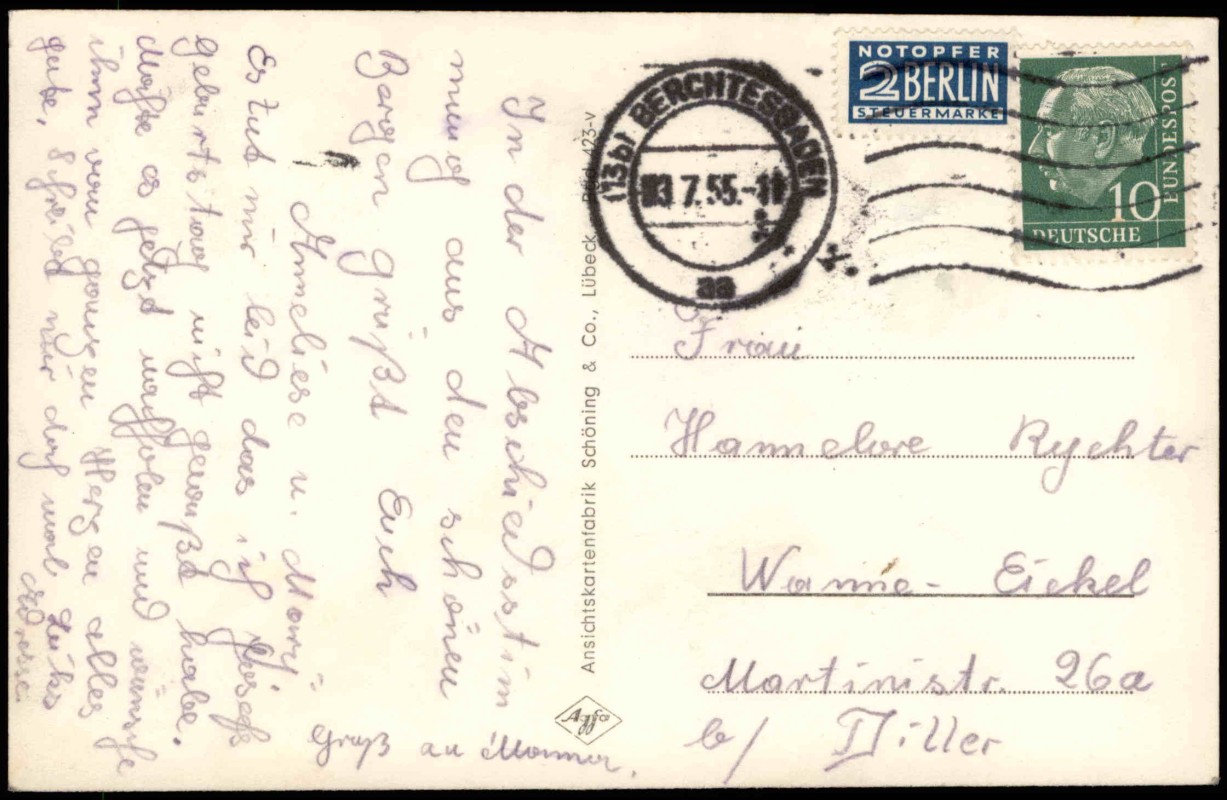 In der Abschiedsstim
mung aus den schönen
Bergen grüßt Euch
Anneliese u.
Es tut mir leid das ich
Geburtstag nicht gewußt habe.
Möchte es jetzt nachholen und wünsche
ihm von ganzen Herzen alles
gute, Schreibt mir doch mal
Adresse
Gruß an
Ansichtskartenfabrik Schöning & Co., Lübeck
Agfa
(13b) BERCHTESGADEN
3.7.55.-11
aa
NOTOPFER
2 BERLIN
STEUERMARKE
10
DEUTSCHE
BUNDESPOST
Frau
Hannelore Rychter
Wanne-Eickel
Martinistr. 26a
b/ Diller